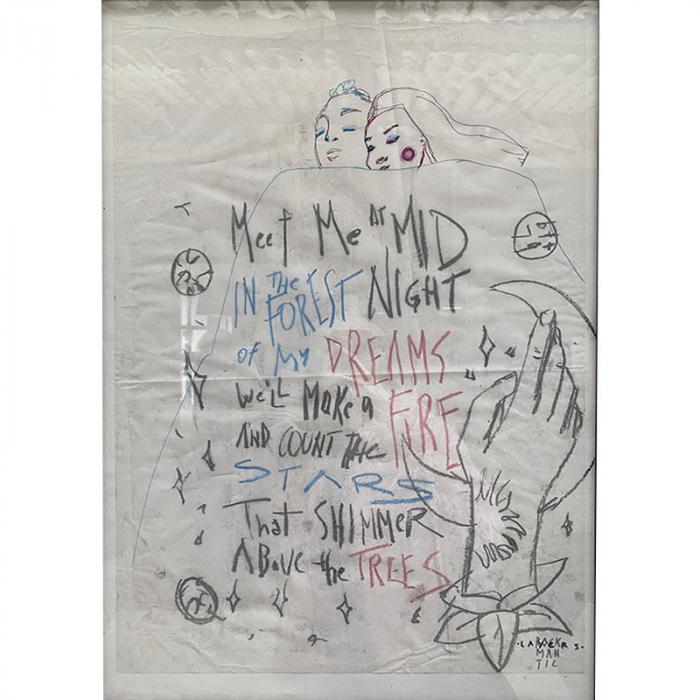 Meet Me AT MID
IN THE FOREST NIGHT
OF MY DREAMS
We'LL MAKe A FIRE
AND COUNT THE
STARS
That SHIMMER
ABOVE the TREES
MAN
TIC